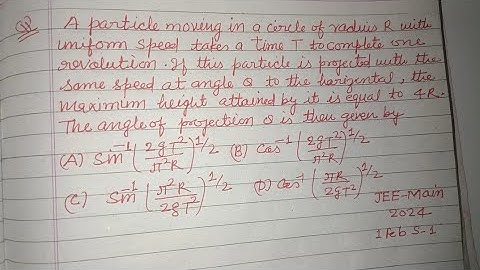 QP A particle moving in a cercle of radius R with
uniform speed takes a time T to complete one
revolution. If this particle is projected with the
same speed at angle Q to the horizental, the
maximum height attained by it is equal to 4R.
The angle of projection Q is then given by
(A) Sin⁻¹ (2gT²/π²R)^1/2 (B) Cos⁻¹ (2gT²/π²R)^1/2
(C) Sin⁻¹ (π²R/2gT²)^1/2 (D) Cos⁻¹ (πR/2gT²)^1/2
JEE-Main
2024
1 Feb S-1